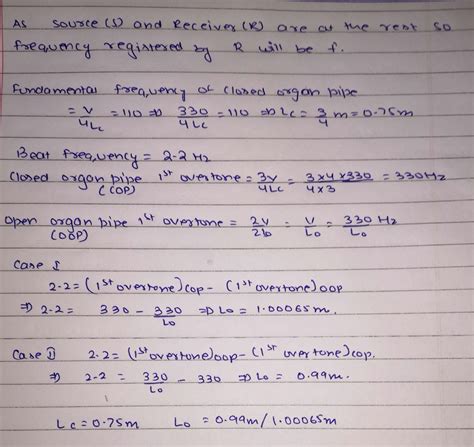 As source (S) and Receiver (R) are at the rest so
frequency registered by R will be f.
Fundamental frequency of closed organ pipe
= v/4Lc = 110 ⇒ 330/4Lc = 110 ⇒ Lc = 3/4 m = 0.75m
Beat frequency = 2.2 Hz
Closed organ pipe 1st overtone = 3v/4Lc = 3x4x330/4x3 = 330Hz
(COP)
Open organ pipe 1st overtone = 2v/2lo = v/Lo = 330 Hz/Lo
(OOP)
Case I
2.2 = (1st overtone)cop - (1st overtone)oop
⇒ 2.2 = 330 - 330/Lo ⇒ Lo = 1.00065m.
Case II 2.2 = (1st overtone)oop - (1st overtone)cop.
⇒ 2.2 = 330/Lo - 330 ⇒ Lo = 0.99m.
Lc = 0.75m Lo = 0.99m/1.00065m